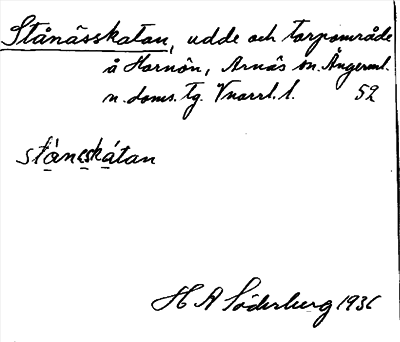 Stånässkatan, udde och torpområde
å Hornön, Arnäs sn. Ångerml.
n. doms. tg. Vnorrl. l. 52
stå̀neskátan
H A Söderberg 1936